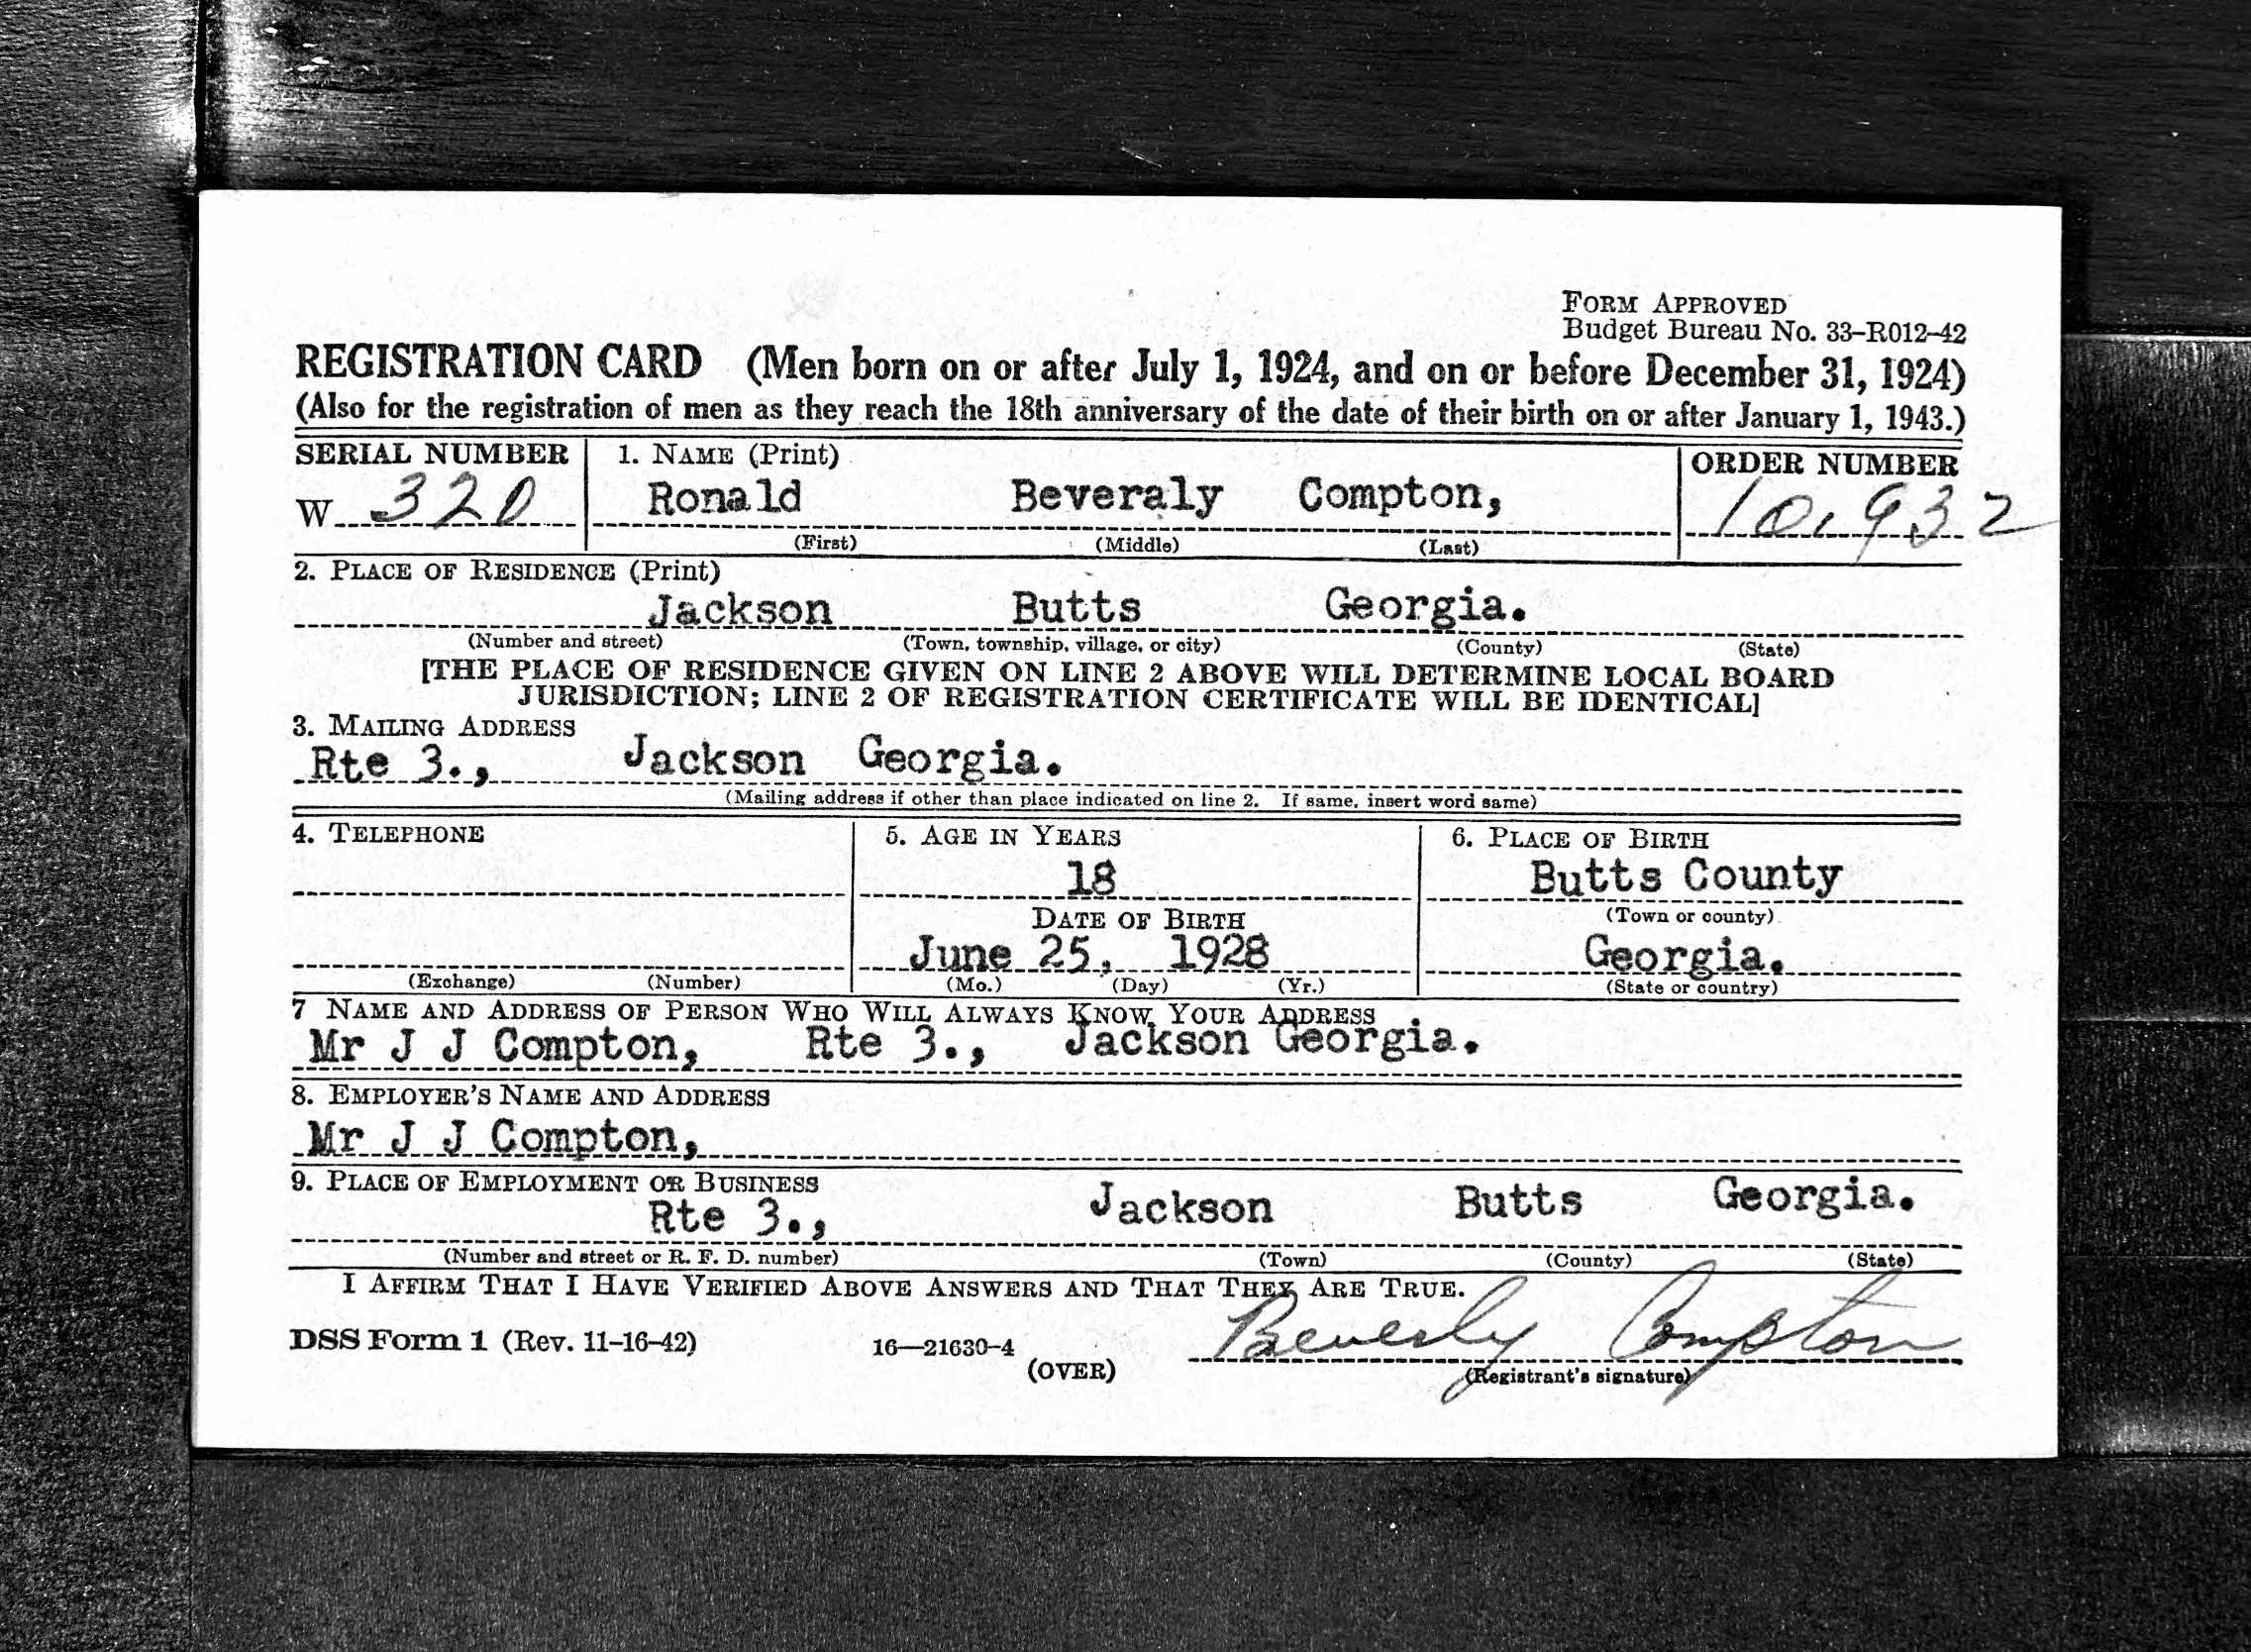 FORM APPROVED
Budget Bureau No. 33–R012–42
REGISTRATION CARD (Men born on or after July 1, 1924, and on or before December 31, 1924)
(Also for the registration of men as they reach the 18th anniversary of the date of their birth on or after January 1, 1943.)
SERIAL NUMBER 1. NAME (Print) ORDER NUMBER
W 320 Ronald Beveraly Compton, 10,932
(First) (Middle) (Last)
2. PLACE OF RESIDENCE (Print)
Jackson Butts Georgia.
(Number and street) (Town, township, village, or city) (County) (State)
[THE PLACE OF RESIDENCE GIVEN ON LINE 2 ABOVE WILL DETERMINE LOCAL BOARD
JURISDICTION; LINE 2 OF REGISTRATION CERTIFICATE WILL BE IDENTICAL]
3. MAILING ADDRESS
Rte 3., Jackson Georgia.
(Mailing address if other than place indicated on line 2. If same, insert word same)
4. TELEPHONE 5. AGE IN YEARS 6. PLACE OF BIRTH
18 Butts County
DATE OF BIRTH (Town or county)
June 25, 1928 Georgia.
(Exchange) (Number) (Mo.) (Day) (Yr.) (State or country)
7 NAME AND ADDRESS OF PERSON WHO WILL ALWAYS KNOW YOUR ADDRESS
Mr J J Compton, Rte 3., Jackson Georgia.
8. EMPLOYER'S NAME AND ADDRESS
Mr J J Compton,
9. PLACE OF EMPLOYMENT OR BUSINESS
Rte 3., Jackson Butts Georgia.
(Number and street or R. F. D. number) (Town) (County) (State)
I AFFIRM THAT I HAVE VERIFIED ABOVE ANSWERS AND THAT THEY ARE TRUE.
DSS Form 1 (Rev. 11–16–42) 16—21630–4 Beverly Compton
(OVER) (Registrant's signature)